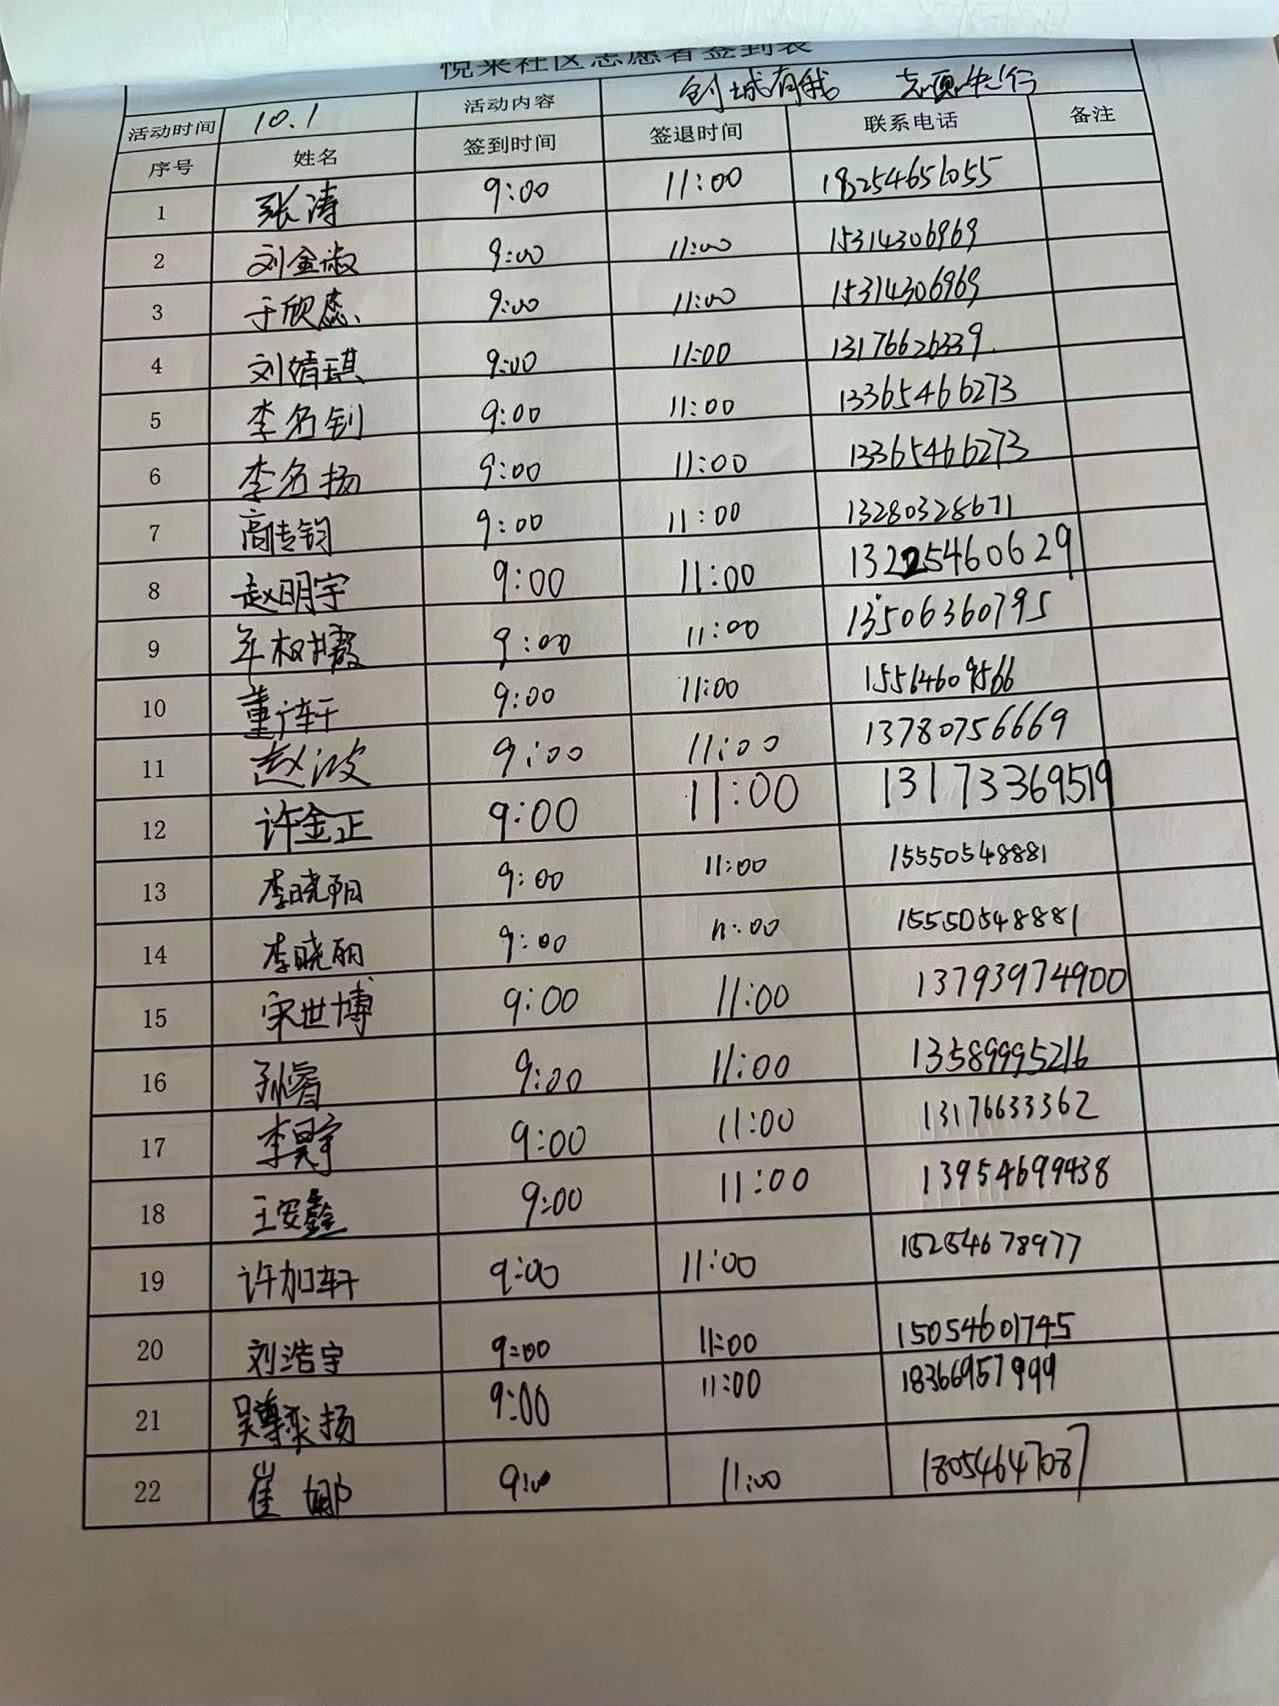 悦来社区志愿者签到表
活动时间 10.1 活动内容 创城有我 志愿先行
序号 姓名 签到时间 签退时间 联系电话 备注
1 张涛 9:00 11:00 18254651055
2 刘金淑 9:00 11:00 15314306969
3 于欣蕊 9:00 11:00 15314306969
4 刘婧琪 9:00 11:00 13176626339
5 李名钊 9:00 11:00 13365466273
6 李名扬 9:00 11:00 13365466273
7 高 钧 9:00 11:00 13280328671
8 赵明宇 9:00 11:00 13225460629
9 年权 9:00 11:00 13506360795
10 董广轩 9:00 11:00 15564609566
11 赵波 9:00 11:00 13780756669
12 许金正 9:00 11:00 13173369519
13 李晓阳 9:00 11:00 15550548881
14 李晓丽 9:00 11:00 15550548881
15 宋世博 9:00 11:00 13793974900
16 孙睿 9:00 11:00 13589995216
17 李昊宇 9:00 11:00 13176633362
18 王安鑫 9:00 11:00 13954699438
19 许加轩 9:00 11:00 15254678977
20 刘浩宇 9:00 11:00 15054601745
21 吴 奕扬 9:00 11:00 18366957999
22 崔娜 9:00 11:00 18054647087